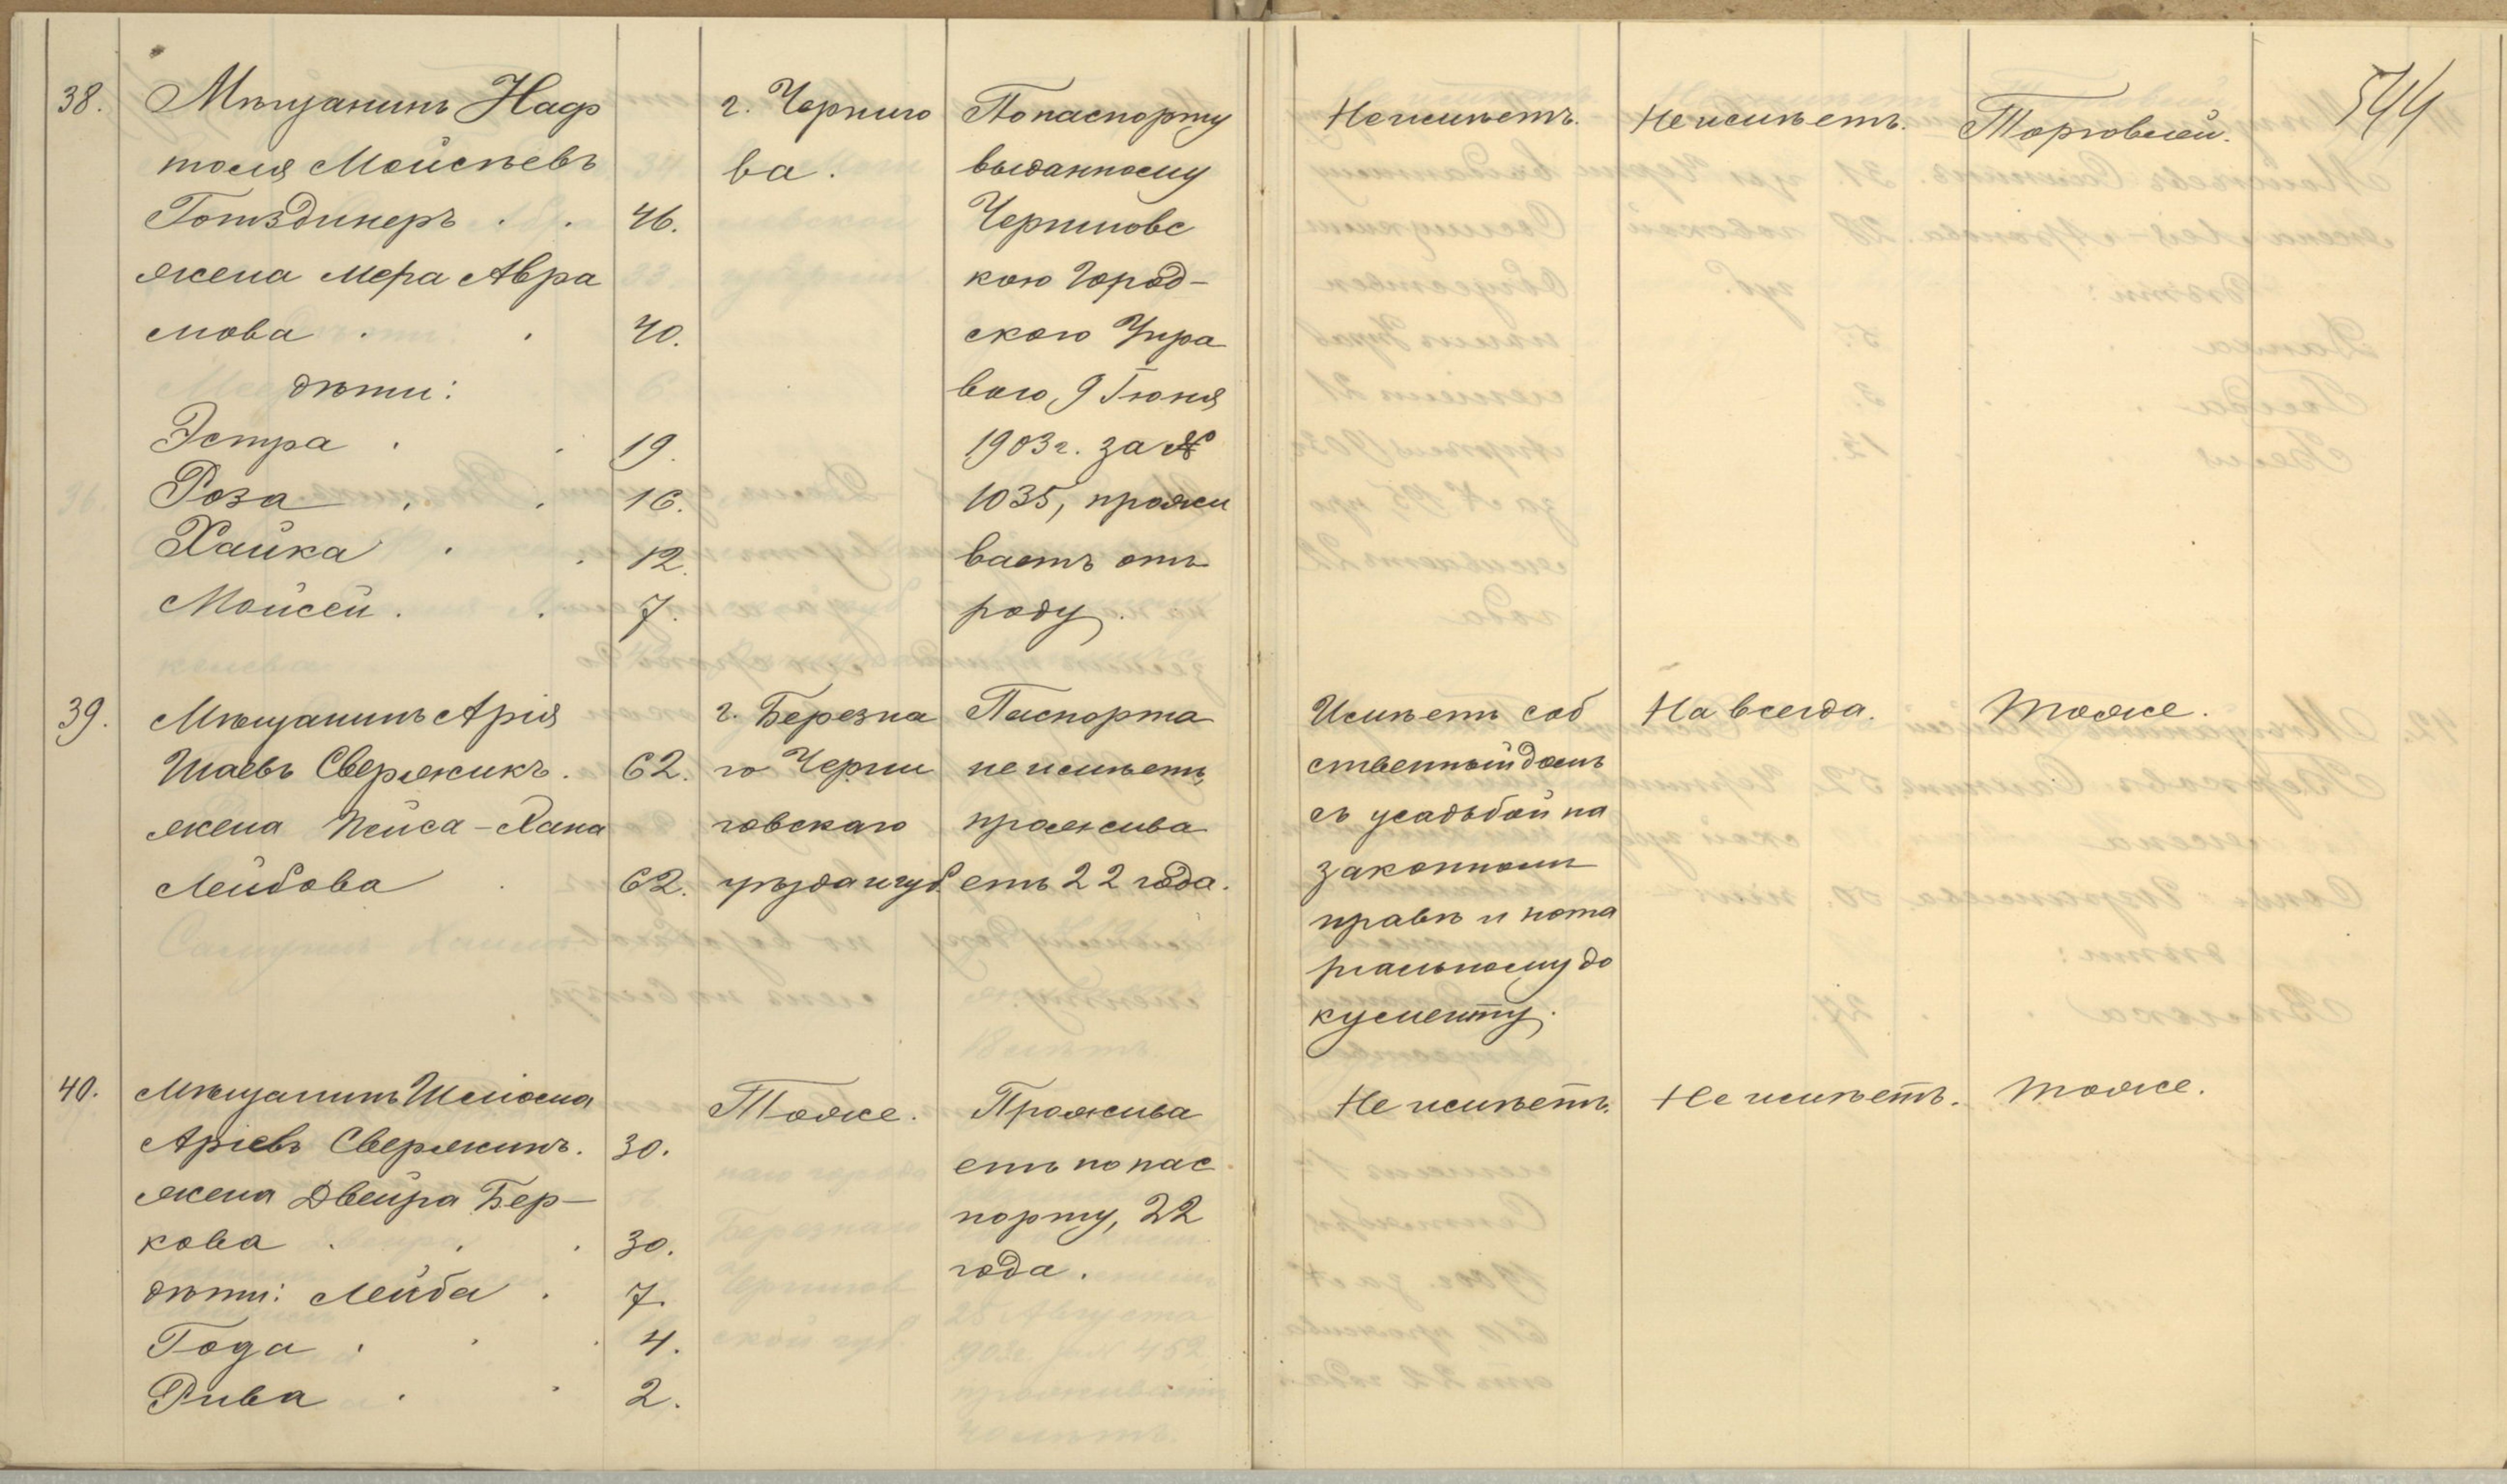 544
38.
Мѣщанинъ Наф
толя Мойсѣевъ
Готздинеръ . . 46.
жена Мера Авра
мова . . 40.
дѣти:
Эстра . . 19.
Роза . . 16.
Хайка . . 12.
Мойсей . . 7.
г. Черниго
ва.
По паспорту
выданному
Черниговс
кою Город-
скою Упра
вою, 9 Іюня
1903 г. за №
1035, прожи
ваетъ отъ
роду.
Не имѣетъ.
Не имѣетъ.
Торговлей.
39.
Мѣщанинъ Арія
Шаевъ Свержикъ. 62.
жена Пейса-Хана
Лейбова . 62.
г. Березна
го Черни
говскаго
уѣзда и губ.
Паспорта
не имѣетъ,
прожива
етъ 22 года.
Имѣетъ соб
ственный домъ
съ усадьбой на
законномъ
правѣ и нота
ріальному до
кументу.
На всегда.
Тоже.
40.
Мѣщанинъ Шлюма
Аріевъ Свержикъ. 30.
жена Двейра Бер-
кова . . . 30.
дѣти: Лейба . 7.
Года . . . 4.
Рива . . 2.
Тоже.
Прожива
етъ по пас
порту, 22
года.
Не имѣетъ.
Не имѣетъ.
Тоже.